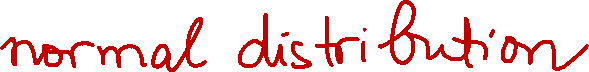 normal distribution